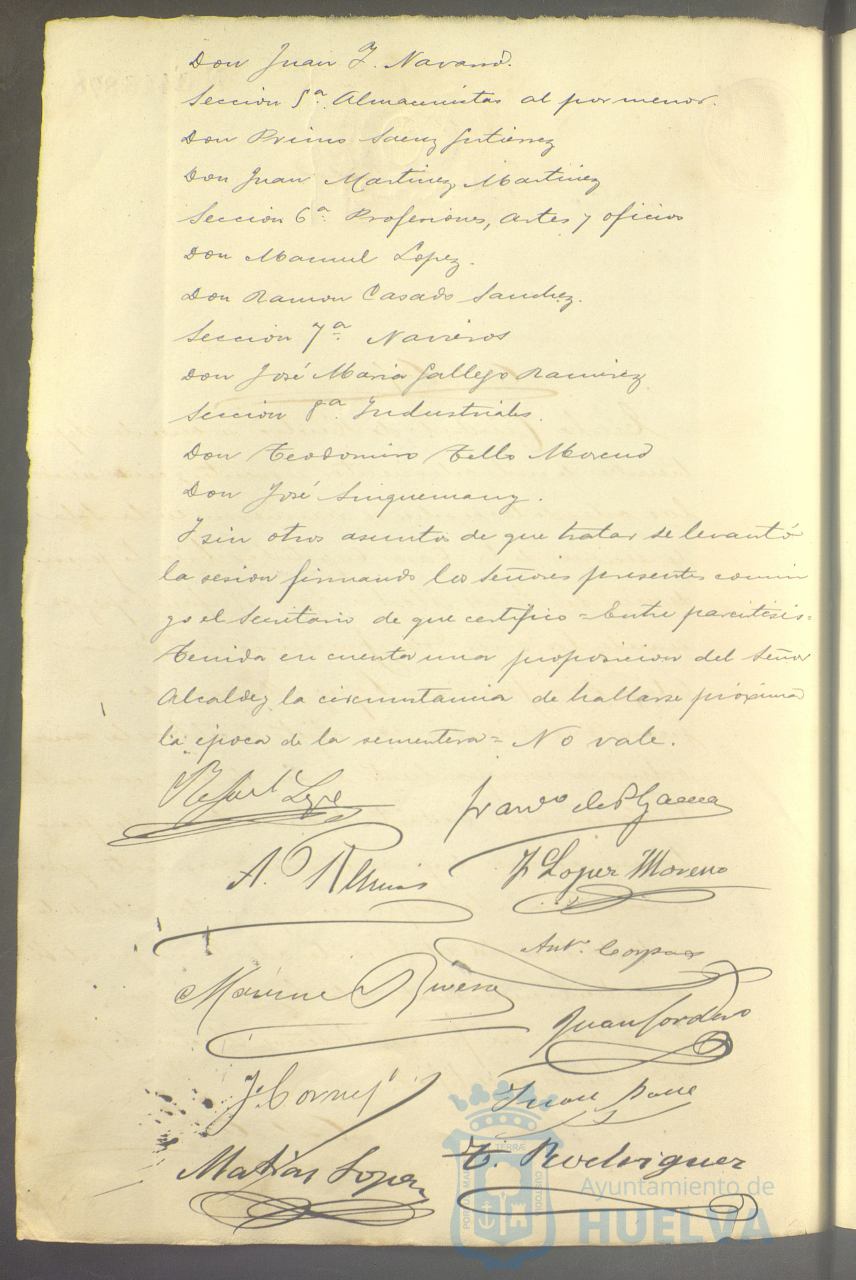 Don Juan F. Navarro.
Seccion 5ª. Almacenistas al por menor.
Don Primo Saenz Gutierrez
Don Juan Martinez Martinez
Seccion 6ª. Profesiones, artes y oficios
Don Manuel Lopez.
Don Ramon Casado Sanchez.
Seccion 7ª Navieros
Don José Maria Gallego Ramirez
Seccion 8ª. Industriales.
Don Teodomiro Tello Moreno
Don José
Y sin otros asuntos de que tratar se levantó
la sesion firmando los Señores presentes conmi
go el Secretario de que certifico = Entre parentesis =
Tenida en cuenta una proposicion del Señor
Alcalde y la circunstancia de hallarse próxima
la época de la sementera = No vale.
Rafael
F Lopez Moreno
A.
Antº. Corpas
Rivera
Juan Cordero
J.
Juan
Matias Lopez
T. Rodriguez
Ayuntamiento de
HUELVA